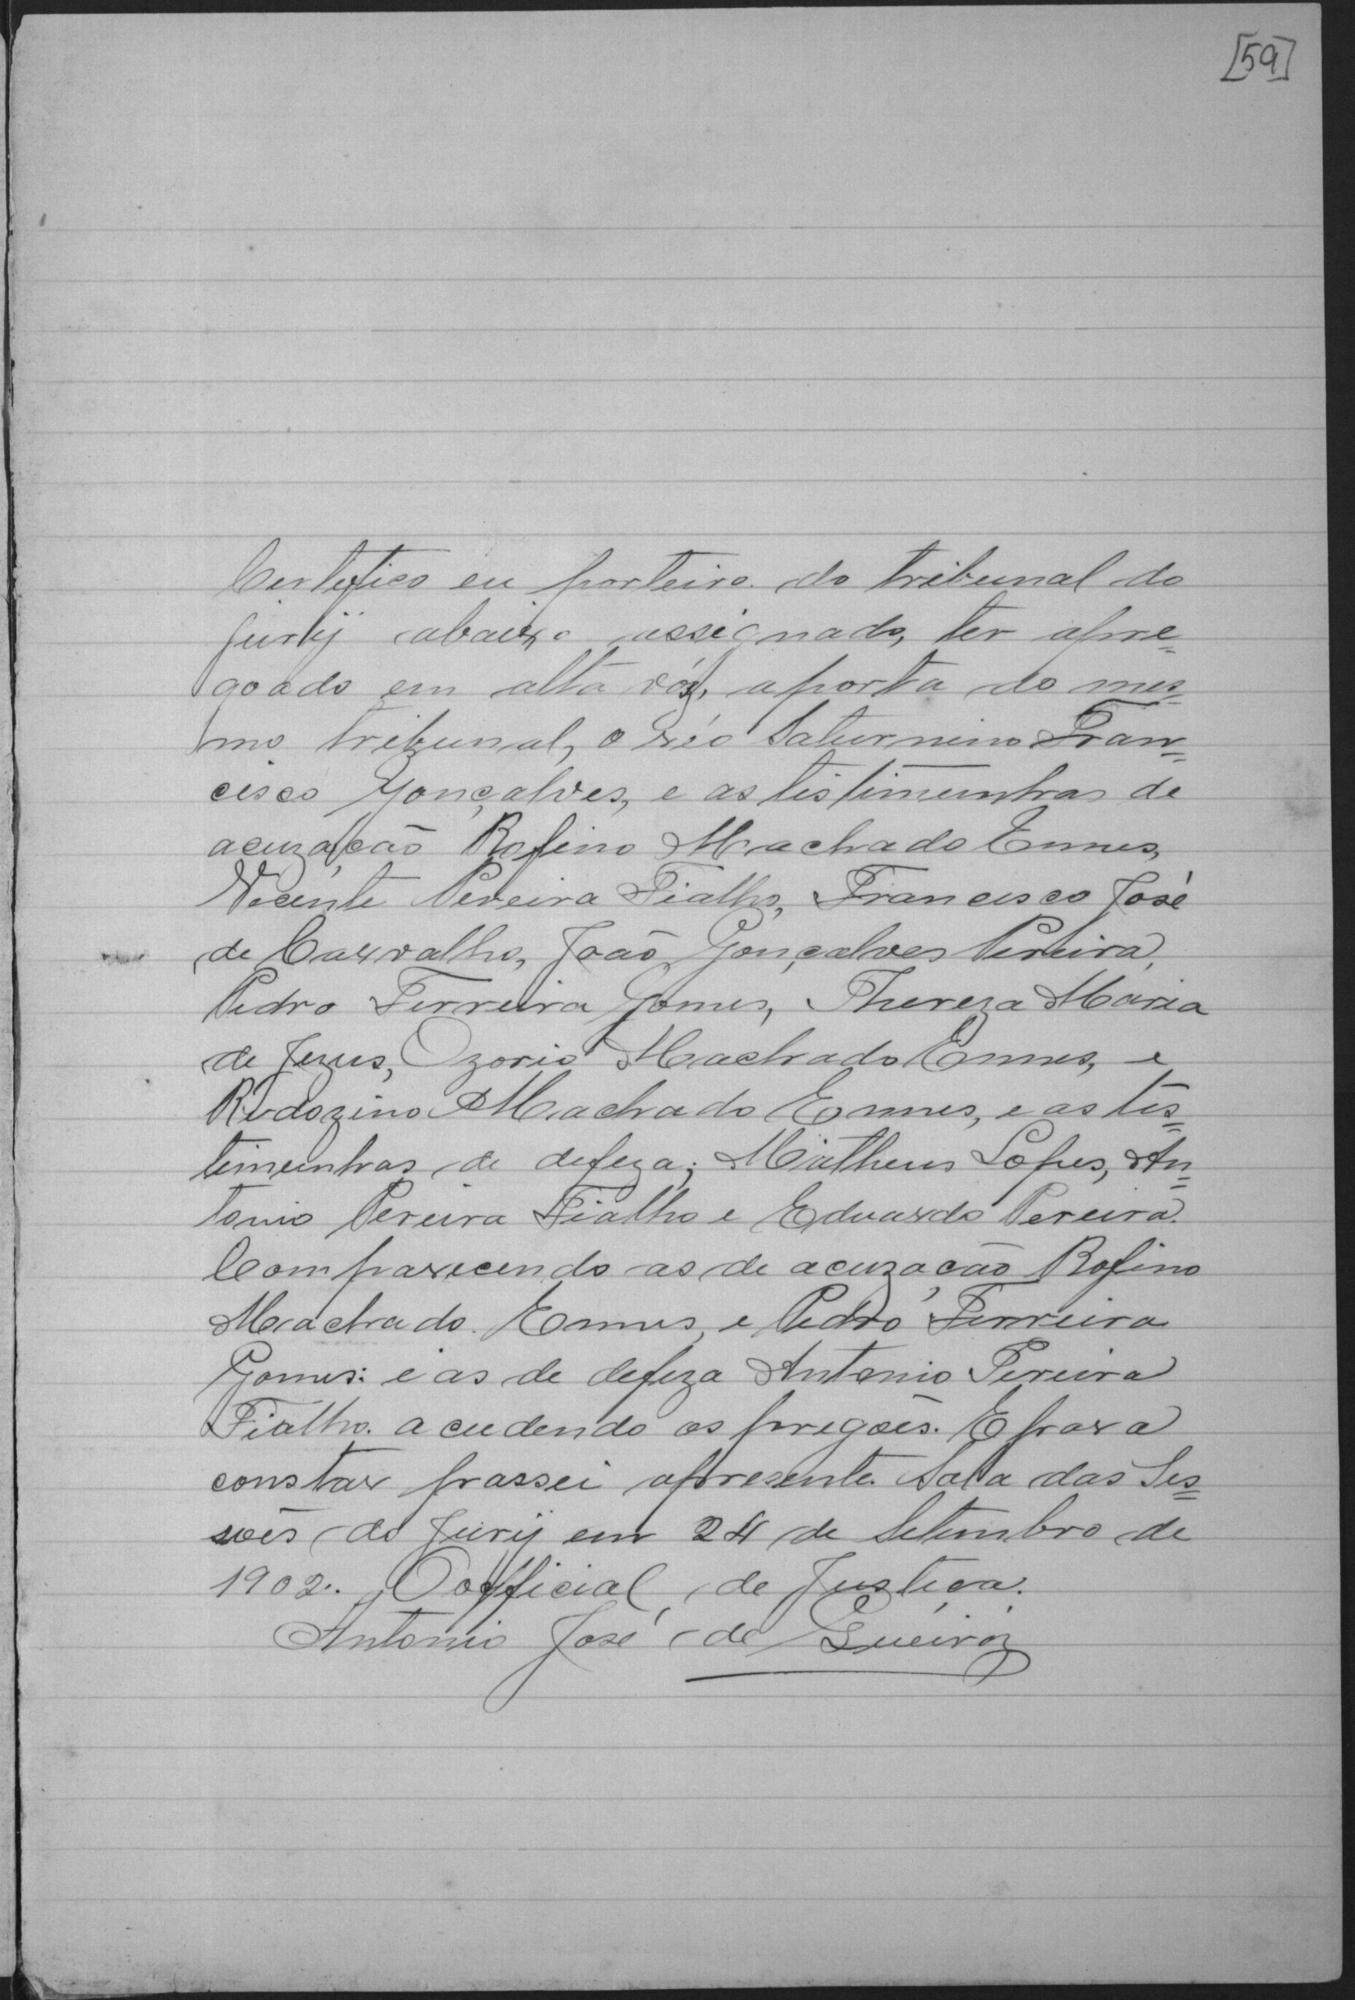 [59]
Certefico eu porteiro do tribunal do
jurÿ abaixo assignado, ter apre=
goado em alta vóz, aporta do mes=
mo tribunal, o réo Saturnino Fran=
cisco Gonçalves, e as testimunhas de
acuzação Rofino Machado Ennes,
Vicente Pereira Fialho, Francisco José
de Carvalho, João Gonçalves Pereira,
Pedro Ferreira Gomes, Thereza Maria
de Jezus, Ozorio Machado Ennes, e
Rodozino Machado Ennes, e as tes=
timunhas de defeza; Matheus Lopes, An=
tonio Pereira Fialho e Eduardo Pereira.
Comparecendo as de acuzação Rofino
Machado Ennes, e Pedro Ferreira
Gomes: e as de defeza Antonio Pereira
Fialho. acudendo os pregões. E para
constar passei apresente. Sala das Ses=
sões do Jurÿ em 24 de Setembro de
1902. O official de Justiça.
Antonio José de Queiróz